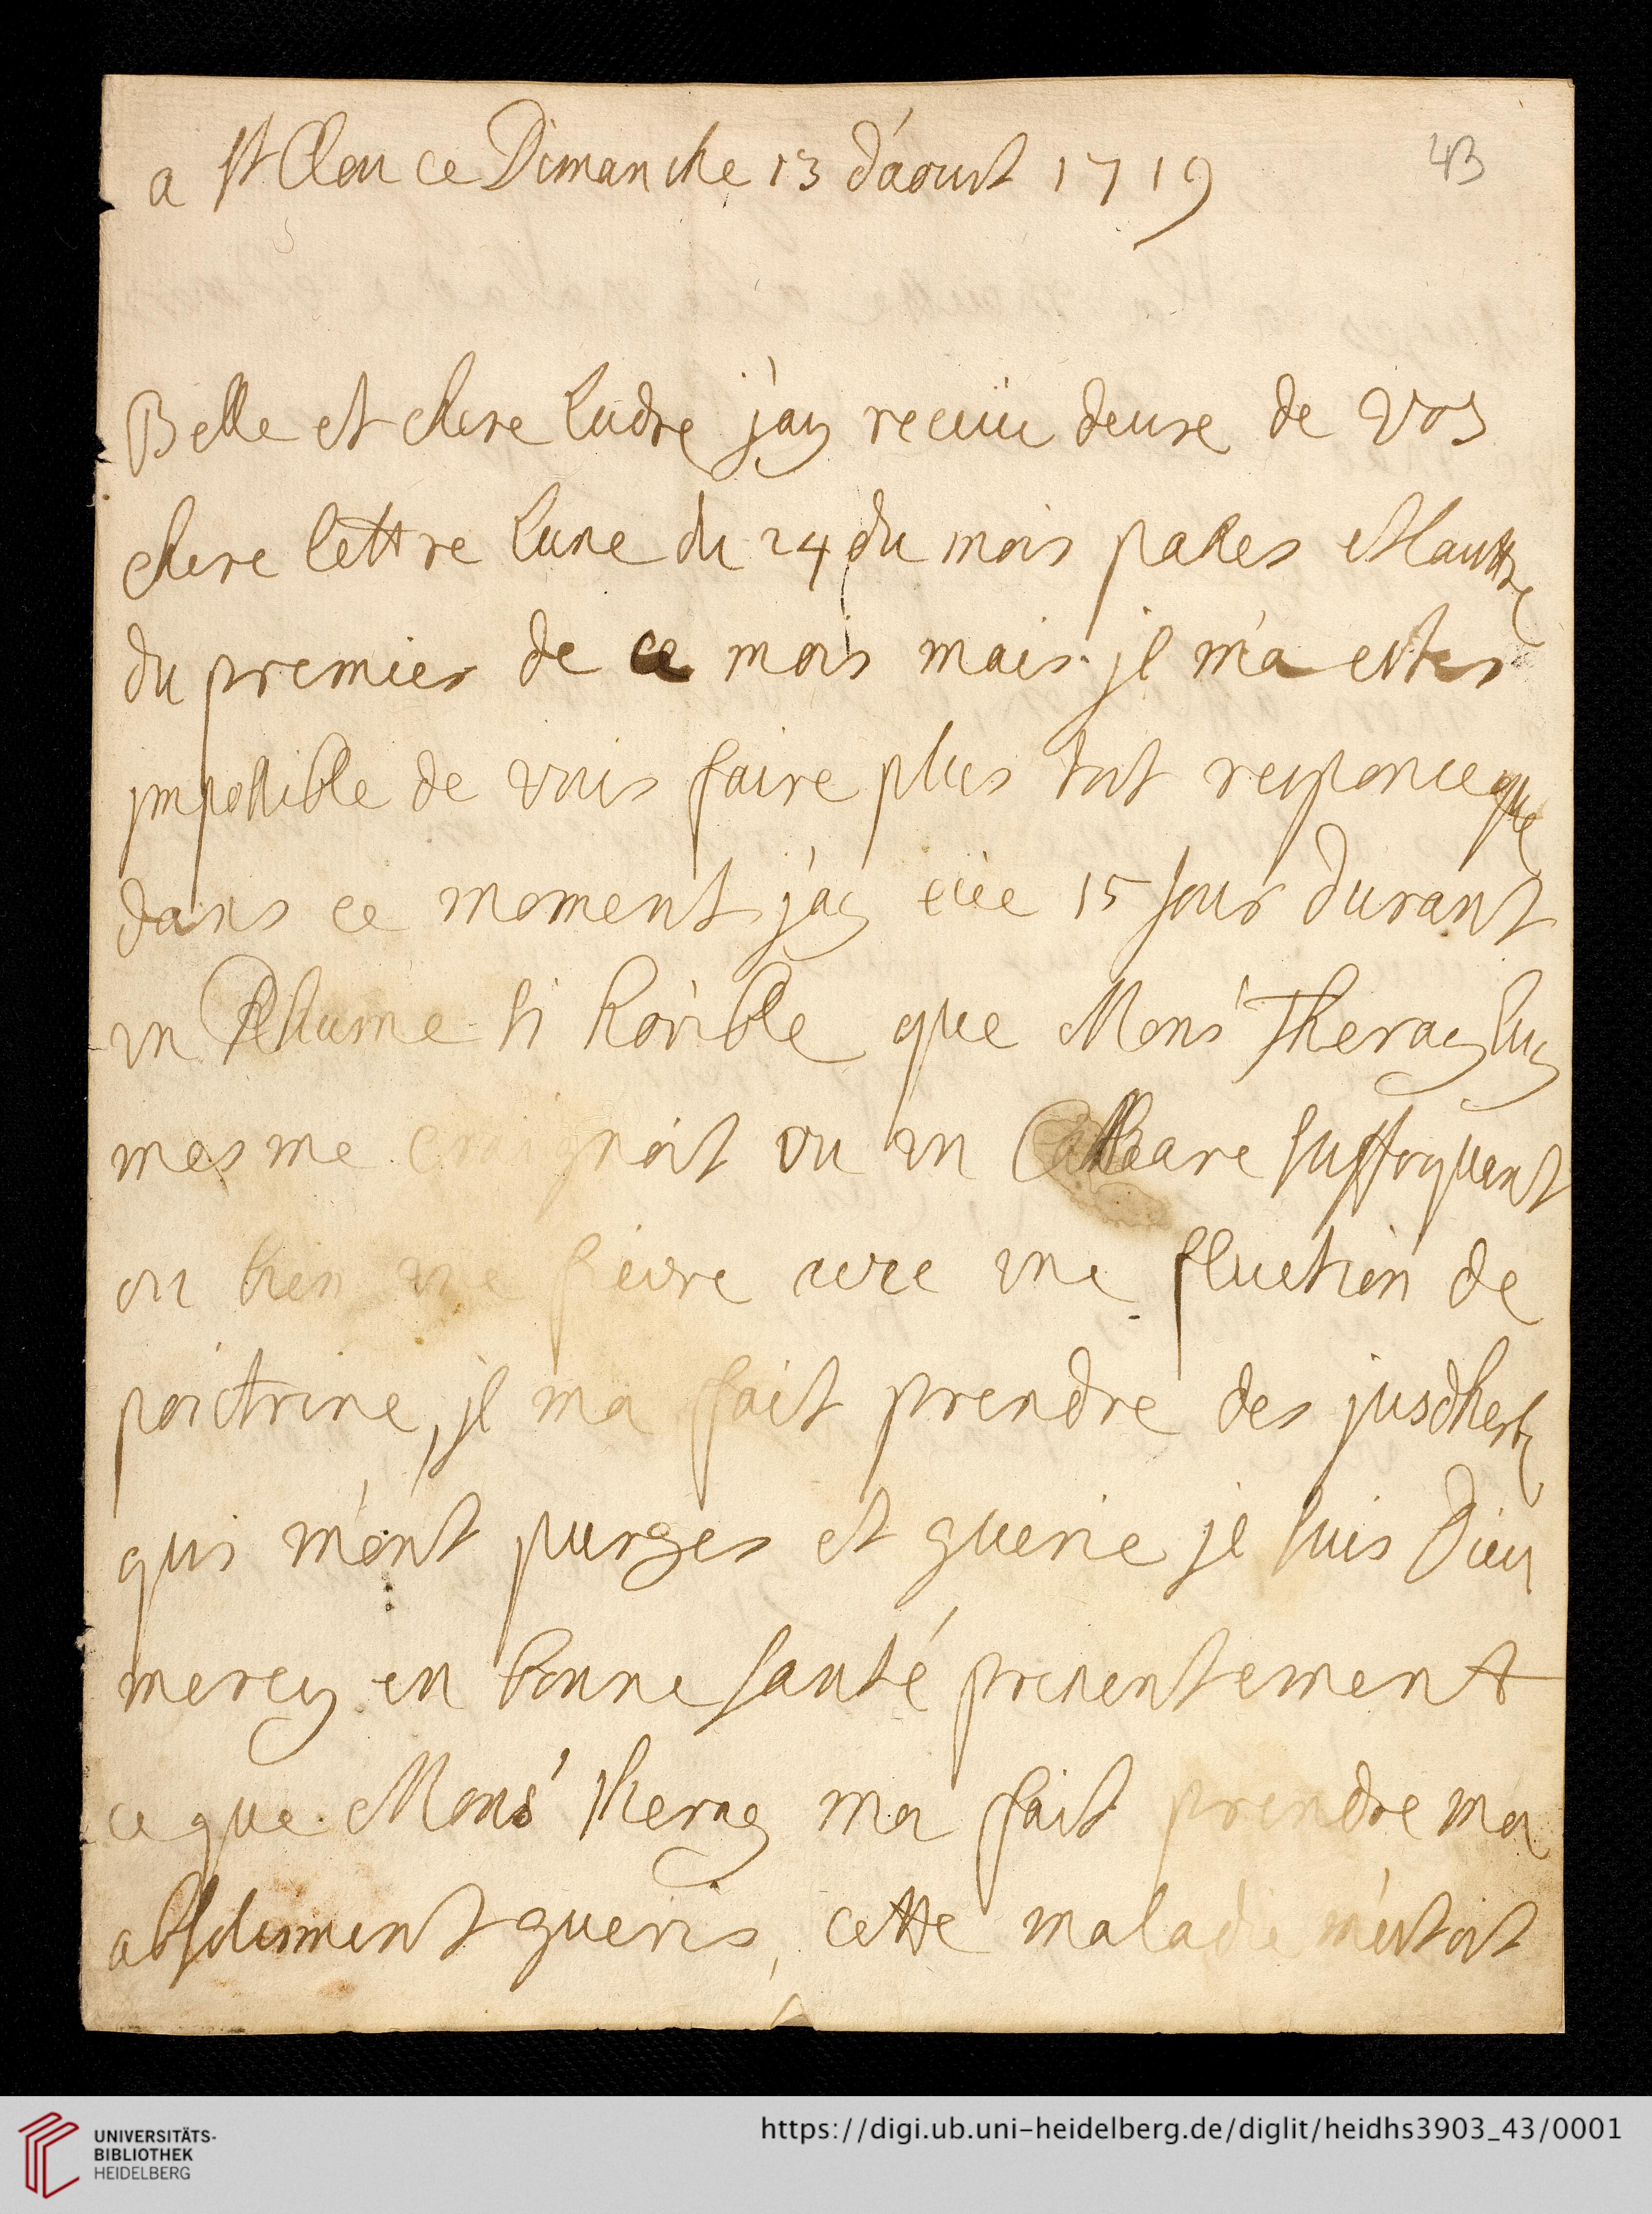 a St Clou ce Dimanche 13 d'aoust 1719
43
Belle et chere Ludre j'ay receüe deuxe de vos
chere lettre lune du 24 du mois passes et lauttre
du premier de ce mois mais jl m'a estes
jmpossible de vous faire plus tost responce que
dans ce moment j'ay eüe 15 jour durant
un Rhume si horible que Mons' Theray luy
mesme craignoit ou un Cathare suffoquent
ou bien une fievre avec une fluction de
poictrine, jl ma fait prendre des jus dherbe
qui m'ont purges et guerie je suis Dieu
mercy en bonne santé presentement
ce que Mons' Theray ma fait prendre ma
absolument gueris, cette maladie m'estoit
UNIVERSITÄTS-
BIBLIOTHEK
HEIDELBERG
https://digi.ub.uni-heidelberg.de/diglit/heidhs3903_43/0001